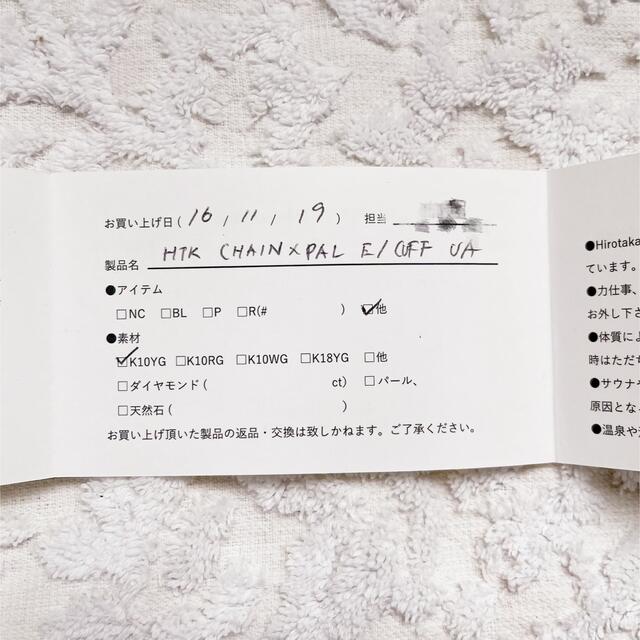 お買い上げ日( 16 , 11 , 19 ) 担当
製品名 HTK CHAIN×PAL E/CUFF UA
●アイテム
□NC □BL □P □R(# ) ☑他
●素材
☑K10YG □K10RG □K10WG □K18YG □他
□ダイヤモンド( ct) □パール、
□天然石( )
お買い上げ頂いた製品の返品・交換は致しかねます。ご了承ください。
●Hirotaka
ています。
●力仕事、
お外し下さ
●体質によ
時はただち
●サウナや
原因とな
●温泉や